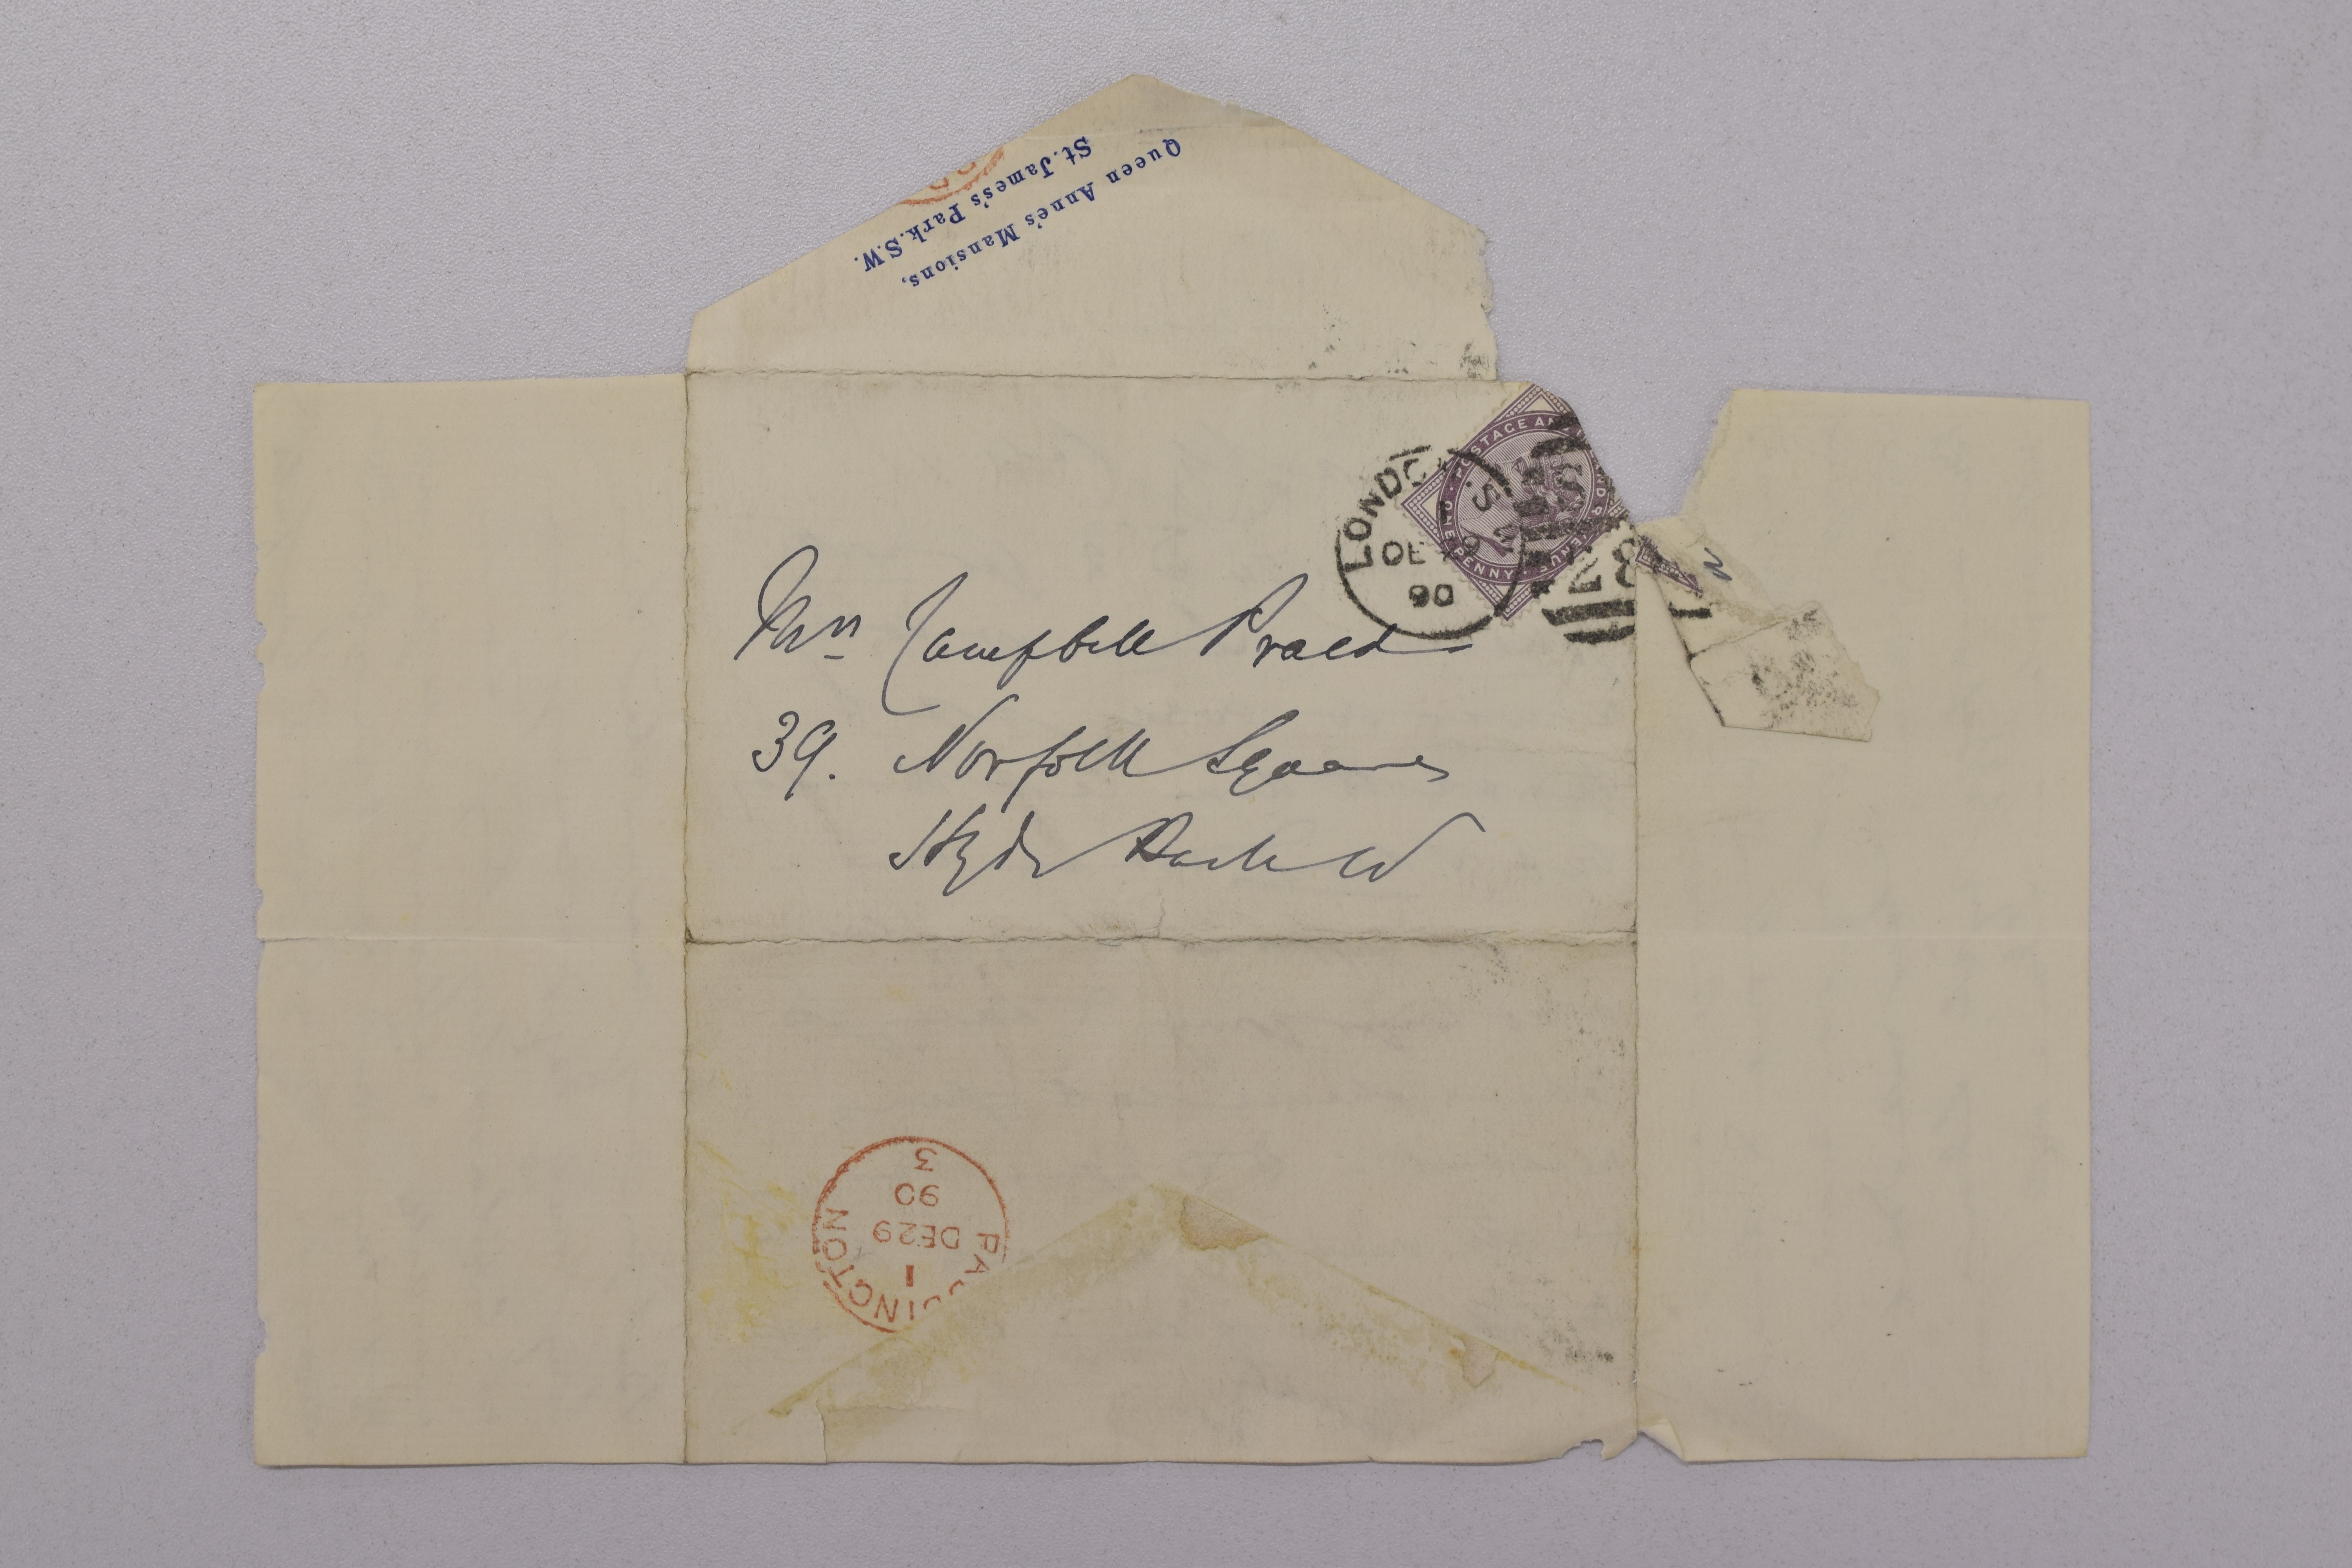 Queen Anne's Mansions,
St. James's Park. S.W.
POSTAGE AND REVENUE
ONE PENNY
LONDON
S.W
DE 29
90
Mrs Campbell Praed
39. Norfolk Square
Hyde Park W
PADDINGTON
1
DE29
90
3